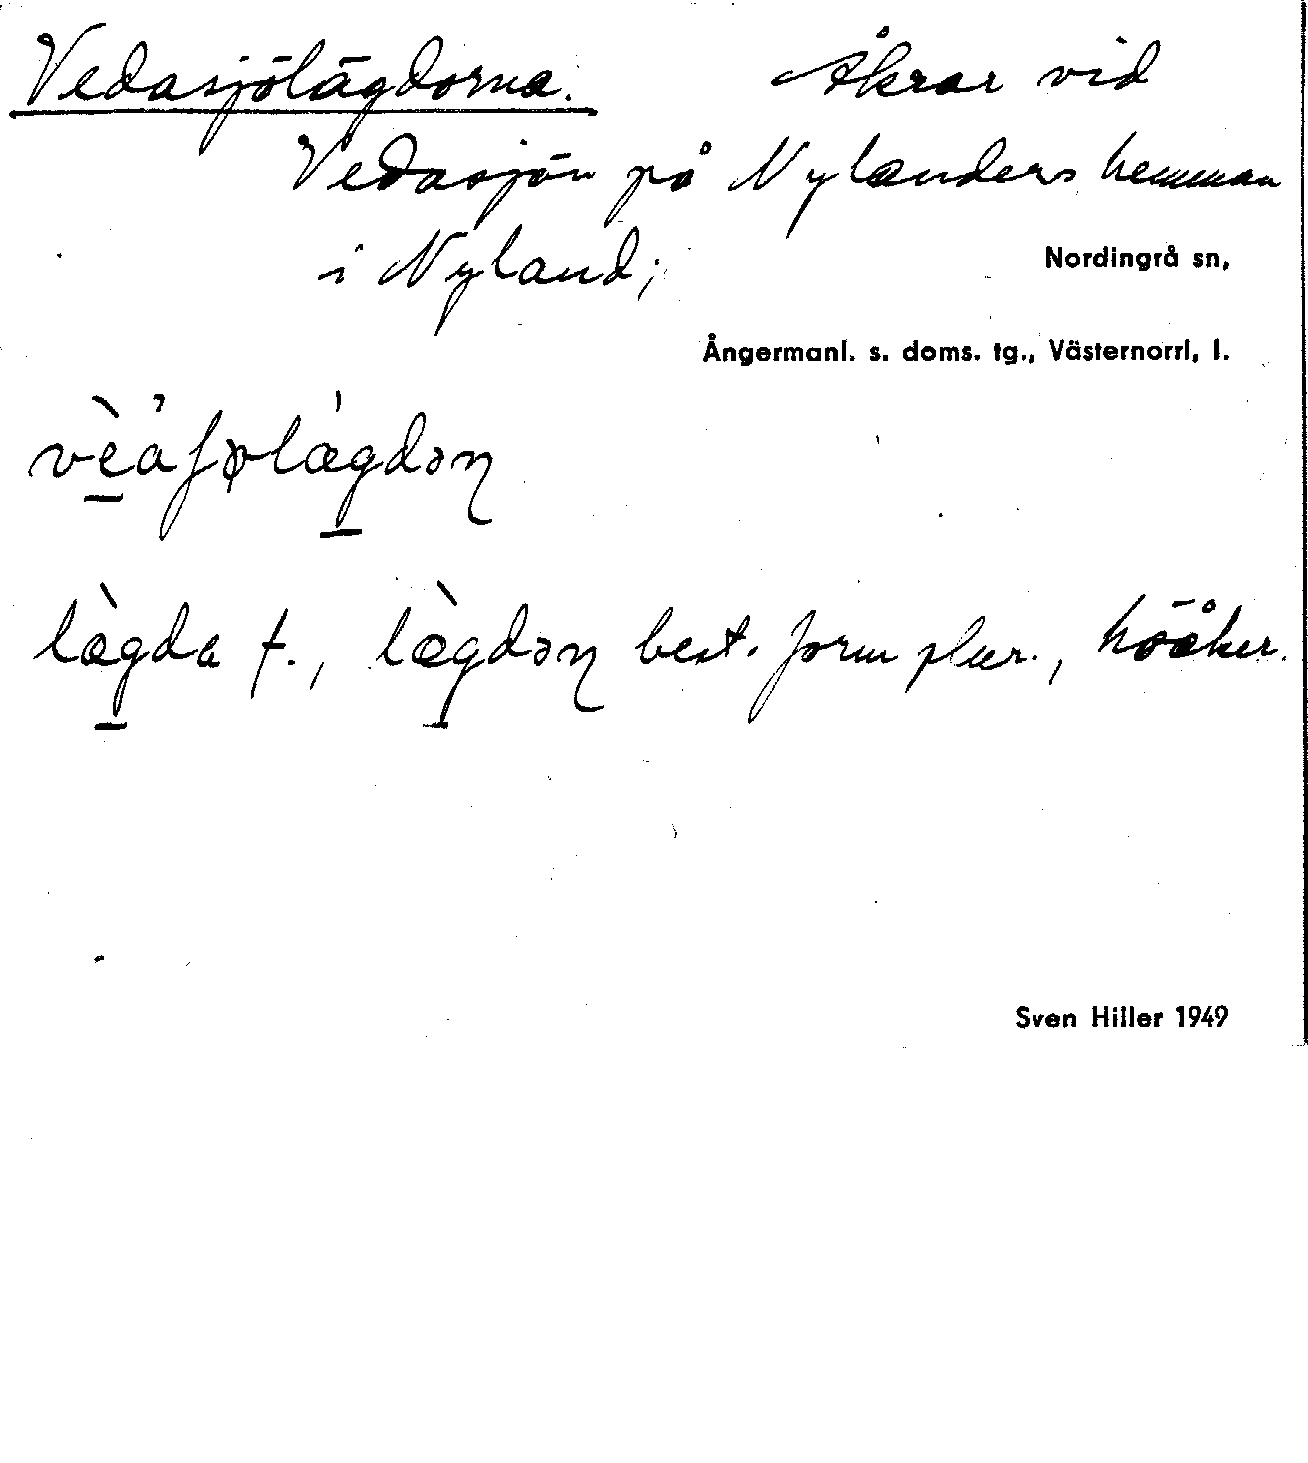 Vedasjölägdorna. Åkrar vid
Vedasjön på Nylanders hemman
i Nyland;
Nordingrå sn,
Ångermanl. s. doms. tg., Västernorrl, l.
vèåʃølǽgdəɳ
lægda f., lægdəɳ best. form plur., höåker.
Sven Hiller 1949